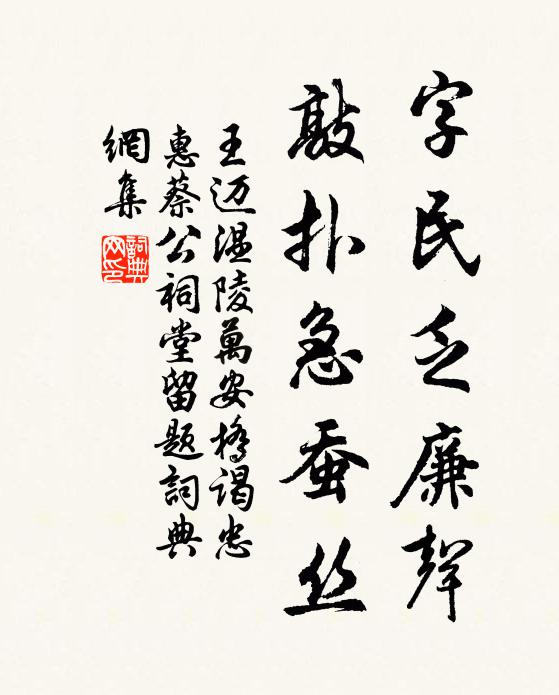 字民乏廉聲
敲扑急蚕丝
王迈温陵萬安橋谒忠
惠蔡公祠堂留题詞典
網集
詞典
网印